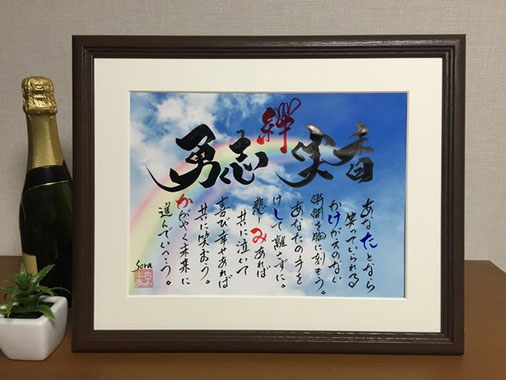 勇志
絆
実香
あなたとなら
笑っていられる
かけがえのない
を胸に刻もう。
あなたの手を
けして離さずに。
悲しみあれば
共に泣いて
喜び幸せあれば
共に笑おう。
かがやく未来に
進んでいこう。
Sora